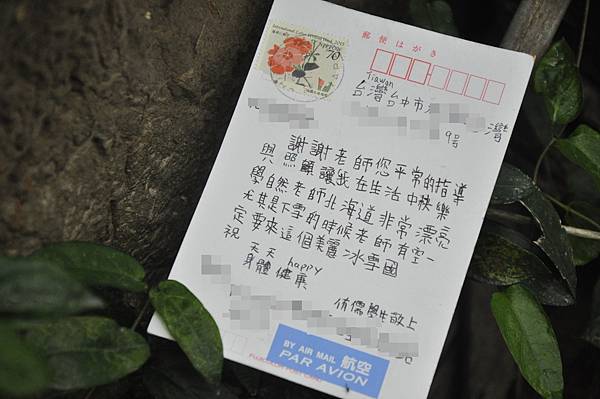 International Letter Writing Week, 2013
NIPPON
70
郵便はがき
Tiawan
台灣台中市
灣
9号
謝謝老師您平常的指導
與照顧讓我在生活中快樂
學自然老師北海道非常漂亮
尤其是下雪的時候老師有空一
定要來這個美麗冰雪國
祝
天天 happy
身體健康
侑儒學生敬上
BY AIR MAIL 航空
PAR AVION